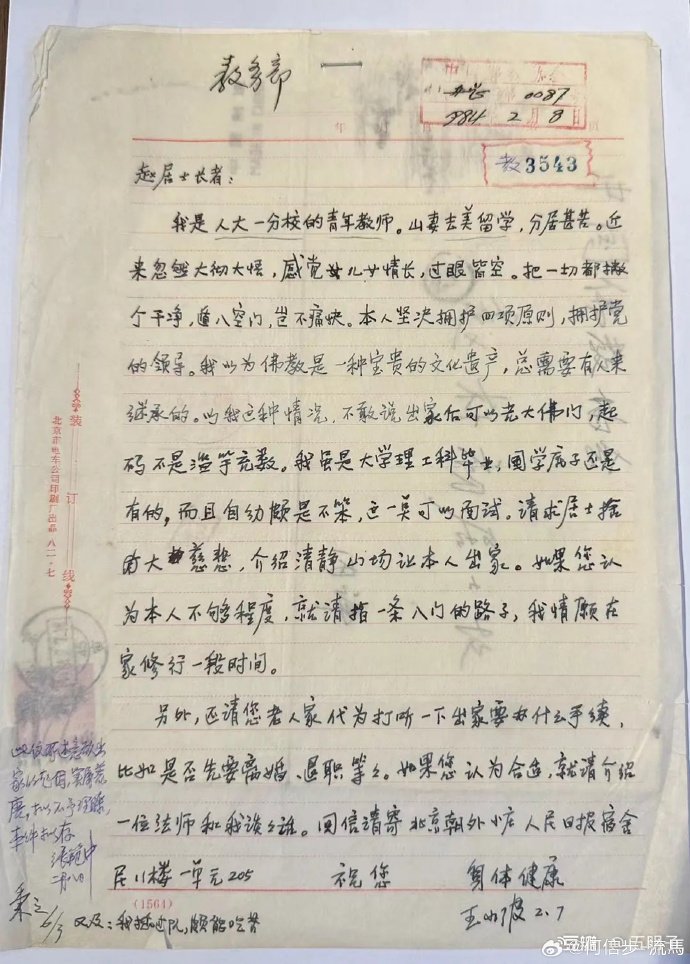 教务部
0087
1984年2月8日
教3543
赵居士长者：
我是人大一分校的青年教师。山妻去美留学，分居甚苦。近
来忽然大彻大悟，感觉儿女情长，过眼皆空。把一切都撇
个干净，遁入空门，岂不痛快。本人坚决拥护四项原则，拥护党
的领导。我以为佛教是一种宝贵的文化遗产，总需要有人来
继承的。以我这种情况，不敢说出家后可以光大佛门，起
码不是滥竽充数。我虽是大学理工科毕业，国学底子还是
有的，而且自幼颇是不笨，这一点可以面试。请求居士施
大慈悲，介绍清静山场让本人出家。如果您认
为本人不够程度，就请指一条入门的路子，我情愿在
家修行一段时间。
另外，还请您老人家代为打听一下出家要办什么手续，
比如是否先要离婚、退职等等。如果您认为合适，就请介绍
一位法师和我谈谈。回信请寄北京朝外小庄人民日报宿舍
居川楼一单元205 祝您 身体健康
王小波 2.7
又及：我插过队，颇能吃苦
(1564)
装订线
北京市电车公司印刷厂出品 八二·七
出
家的起因，实属荒
唐，拟不予理睬，
来件拟存
二月八日
6/3
豆瓣 @五明子
@何倍步-流馬